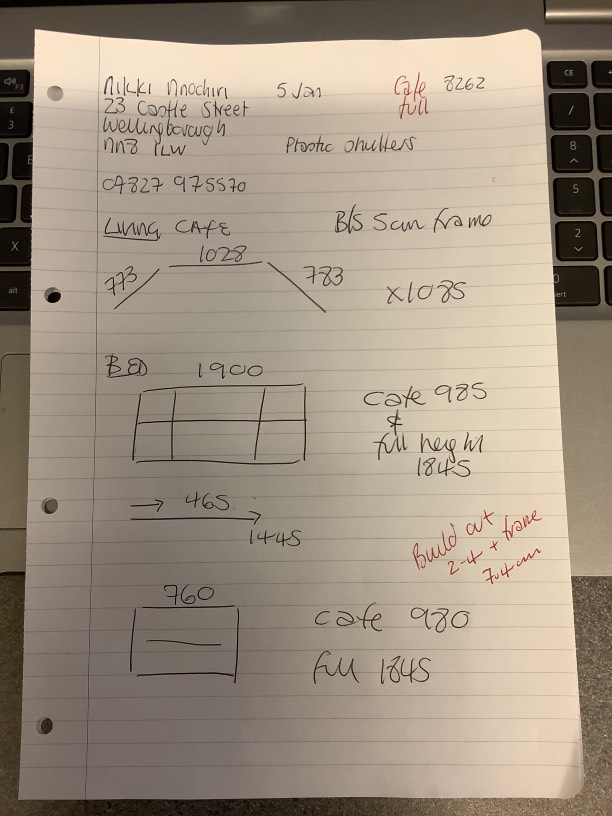 Nikki Nnochiri 5 Jan Cafe 8262
23 Castle Street full
Wellingborough
NN8 1LW Plastic shutters
07827 975570
Living CAFE B/S 5cm frame
773 1028 783 x1085
BED 1900
cafe 985
&
full height
1845
→ 465
1445
Build out
2-4 + frame
7.4cm
760
cafe 980
full 1845